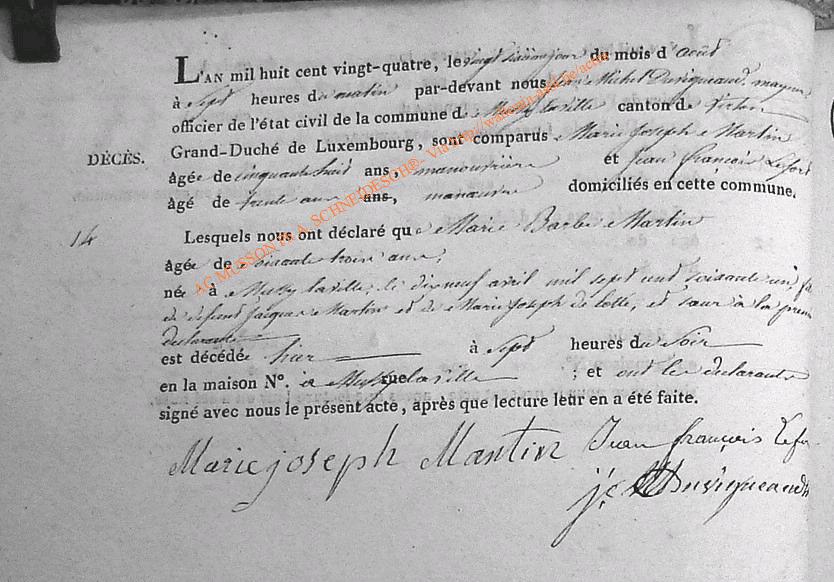 L'AN mil huit cent vingt-quatre, le vingt sixième jour du mois d'août
à sept heures du matin par-devant nous Jean Michel Duvigneaud, mayeur
officier de l'état civil de la commune de Mussy la ville canton de Virton
DÉCÈS. Grand-Duché de Luxembourg, sont comparus Marie Joseph Martin
âgée de cinquante huit ans, manouvrière et Jean françois Lefort
âgé de trente ans ans, manœuvre domiciliés en cette commune.
14 Lesquels nous ont déclaré que Marie Barbe Martin
âgée de soixante trois ans,
née à Mussy laville, le dix neuf avril mil sept cent soixante un, fille
de défunt Jacques Martin et de Marie Joseph de lotte, et sœur à la première
déclarante
est décédée hier à sept heures du soir
en la maison N°. à Mussy laville ; et ont les déclarants
signé avec nous le présent acte, après que lecture leur en a été faite.
Marie joseph Martin Jean françois Lefort
Duvigneaud
AC MUSSON Ph A. SCHNEIDESCH©